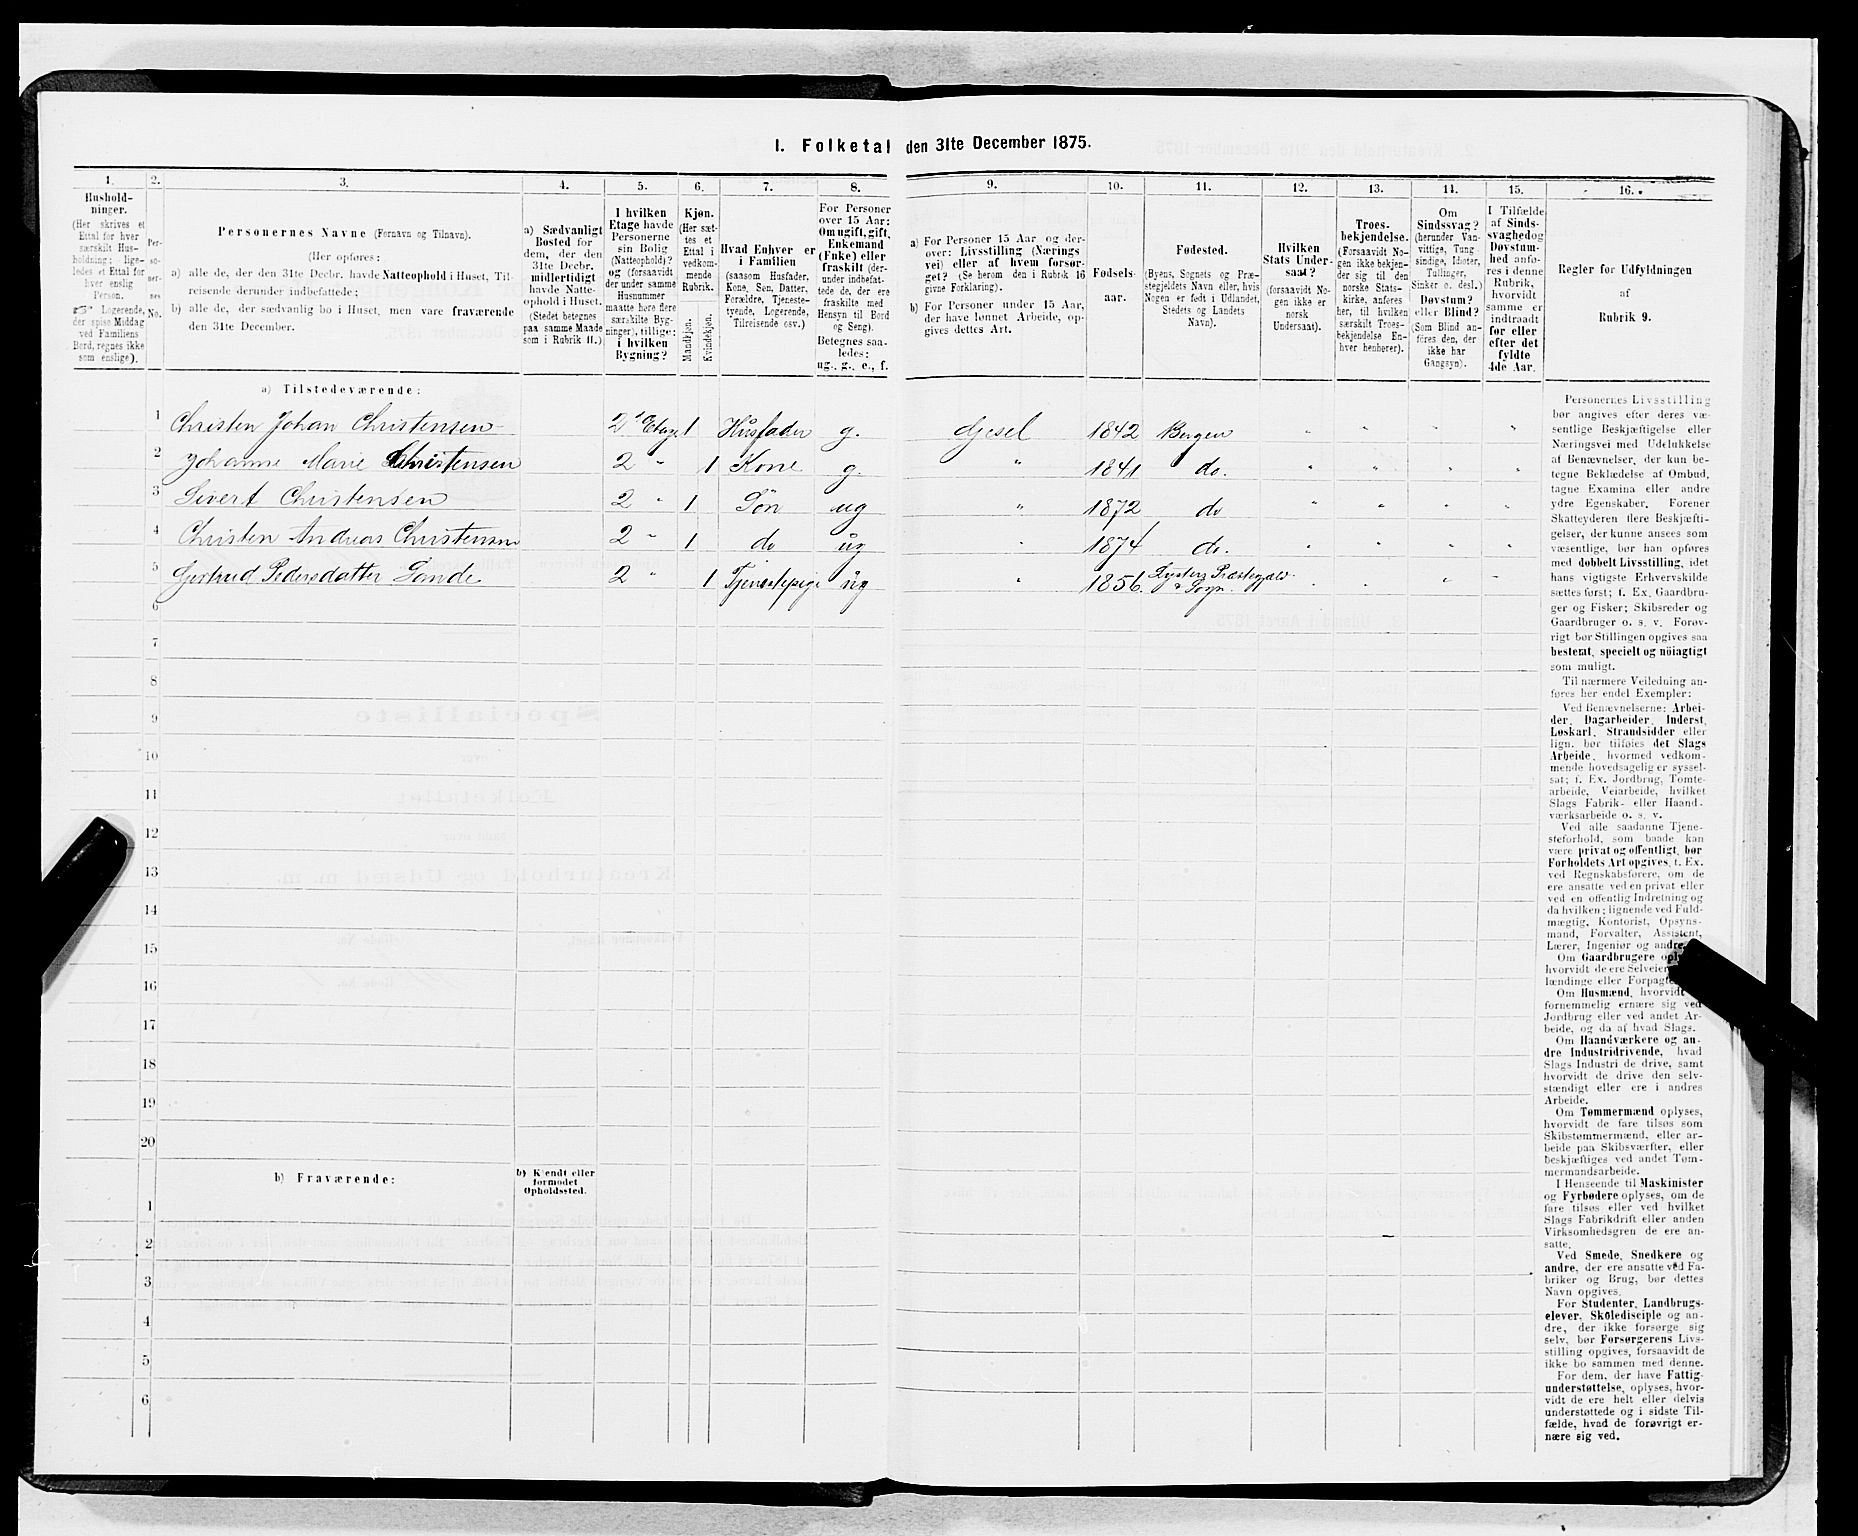 I. Folketal den 31te December 1875.
1. 2. 3. 4. 5. 6. 7. 8. 9. 10. 11. 12. 13. 14. 15. 16.
Hushold-
ninger.
(Her skrives et
Ettal for hver
særskilt Hus-
holdning; lige-
ledes et Ettal for
hver enslig
Person.
Logerende,
der spise Middag
ved Familiens
Bord, regnes ikke
som enslige).
Per-
so-
ner-
nes
No.
Personernes Navne (Fornavn og Tilnavn).
(Her opføres:
a) alle de, der den 31te Decbr. havde Natteophold i Huset, Til-
reisende derunder indbefattede;
b) alle de, der sædvanlig bo i Huset, men vare fraværende
den 31te December.
a) Sædvanligt
Bosted for
dem, der den
31te Decbr.
midlertidigt
havde Natte-
ophold i Huset.
(Stedet betegnes
paa samme Maade
som i Rubrik 11.)
I hvilken
Etage havde
Personerne
sin Bolig
(Natteophold)?
og (forsaavidt
der under samme
Husnummer
maatte høre flere
særskilte Byg-
ninger), tillige:
i hvilken
Bygning?
Kjøn.
(Her sæt-
tes et
Ettal i
vedkom-
mende
Rubrik.
Mandkjøn.
Kvindekjøn.
Hvad Enhver er
i Familien
(saasom Husfader,
Kone, Søn, Datter,
Forældre, Tjeneste-
tyende, Logerende,
Tilreisende osv.)
For Personer
over 15 Aar:
Om ugift, gift,
Enkemand
(Enke) eller
fraskilt (der-
under indbefat-
tede de, der ere
fraskilte med
Hensyn til Bord
og Seng).
Betegnes saa-
ledes:
ug., g., e., f.
a) For Personer 15 Aar og der-
over: Livsstilling (Nærings
vei) eller af hvem forsør-
get? (Se herom den i Rubrik 16
givne Forklaring).
b) For Personer under 15 Aar,
der have lønnet Arbeide, op-
gives dettes Art.
Fødsels-
aar.
Fødested.
(Byens, Sognets og Præ-
stegjeldets Navn eller, hvis
Nogen er født i Udlandet,
Stedets og Landets
Navn).
Hvilken
Stats Under-
saat?
(forsaavidt No-
gen ikke er
norsk
Undersaat).
Troes-
bekjendelse.
(Forsaavidt No-
gen ikke bekjen-
der sig til den
norske Stats-
kirke, anføres
her, til hvilken
særskilt Troes-
bekjendelse En-
hver henhører).
Om
Sindssvag?
(herunder Van-
vittige, Tung-
sindige, Idioter,
Tullinger,
Sinker o. desl.)
Døvstum?
eller Blind?
(Som Blind an-
føres den, der
ikke har
Gangsyn).
I Tilfælde
af Sinds-
svaghed og
Døvstum-
hed anfø-
res i denne
Rubrik,
hvorvidt
samme er
indtraadt
før eller
efter det
fyldte
4de Aar.
Regler for Udfyldningen
af
Rubrik 9.
a) Tilstedeværende:
1 Christen Johan Christensen 2' Etage 1 Husfader g. Gjesel 1842 Bergen " " " "
2 Johanne Marie Christensen 2 " 1 Kone g. " 1841 do. " " " "
3 Sivert Christensen 2 " 1 Søn ug " 1872 do " " " "
4 Christen Andreas Christensen 2 " 1 do ug " 1874 do. " " " "
5 Gjertrud Pedersdatter Sande 2 " 1 Tjenestepige ug " 1856. Lysters Præstegjæld
& Sogn. " " " "
6
7
8
9
10
11
12
13
14
15
16
17
18
19
20
b) Fraværende:
b) Kjendt eller
formodet
Opholdssted.
1
2
3
4
5
6
Personernes Livsstilling
bør angives efter deres væ-
sentlige Beskjæftigelse eller
Næringsvei med Udelukkelse
af Benævnelser, der kun be-
tegne Beklædelse af Ombud,
tagne Examina eller andre
ydre Egenskaber. Forener
Skatteyderen flere Beskjæfti-
gelser, der kunne ansees som
væsentlige, bør han opføres
med dobbelt Livsstilling, idet
hans vigtigste Erhvervskilde
sættes først; f. Ex. Gaardbru-
ger og Fisker; Skibsreder og
Gaardbruger o. s. v. Forøv-
rigt bør Stillingen opgives saa
bestemt, specielt og nöiagtigt
som muligt.
Til nærmere Veiledning an-
føres her endel Exempler:
Ved Benævnelserne: Arbei-
der, Dagarbeider, Inderst,
Løskarl, Strandsidder eller
lign. bør tilføies det Slags
Arbeide, hvormed vedkom-
mende hovedsagelig er syssel-
sat; f. Ex. Jordbrug, Tomte-
arbeide, Veiarbeide, hvilket
Slags Fabrik- eller Haand-
værksarbeide o. s. v.
Ved alle saadanne Tjene-
steforhold, som baade kan
være privat og offentligt, bør
Forholdets Art opgives, f. Ex.
ved Regnskabsførere, om de
ere ansatte ved en privat eller
ved en offentlig Indretning og
da hvilken; lignende ved Fuld-
mægtig, Kontorist, Opsyns-
mand, Forvalter, Assistent,
Lærer, Ingeniør og andre.
Om Gaardbrugere oply-
hvorvidt de ere Selveier
lændinge eller Forpagte
Om Husmænd, hvorvidt
fornemmelig ernære sig ved
Jordbrug eller ved andet Ar-
beide, og da af hvad Slags.
Om Haandværkere og an-
dre Industridrivende, hvad
Slags Industri de drive, samt
hvorvidt de drive den selv-
stændigt eller ere i andres
Arbeide.
Om Tømmermænd oplyses,
hvorvidt de fare tilsøs som
Skibstømmermænd, eller ar-
beide paa Skibsværfter, eller
beskjæftiges ved andet Tøm-
mermandsarbeide.
I Henseende til Maskinister
og Fyrbødere oplyses, om de
fare tilsøs eller ved hvilket
Slags Fabrikdrift eller anden
Virksomhedsgren de ere an-
satte.
Ved Smede, Snedkere og
andre, der ere ansatte ved Fa-
briker og Brug, bør dettes
Navn opgives.
For Studenter, Landbrugs-
elever, Skoledisciple og an-
dre, der ikke forsørge sig
selv, bør Forsørgerens Livs-
stilling opgives, forsaavidt de
ikke bo sammen med denne.
For dem, der have Fattig-
understøttelse, oplyses, hvor-
vidt de ere helt eller delvis
understøttede og i sidste Til-
fælde, hvad de forøvrigt er-
nære sig ved.